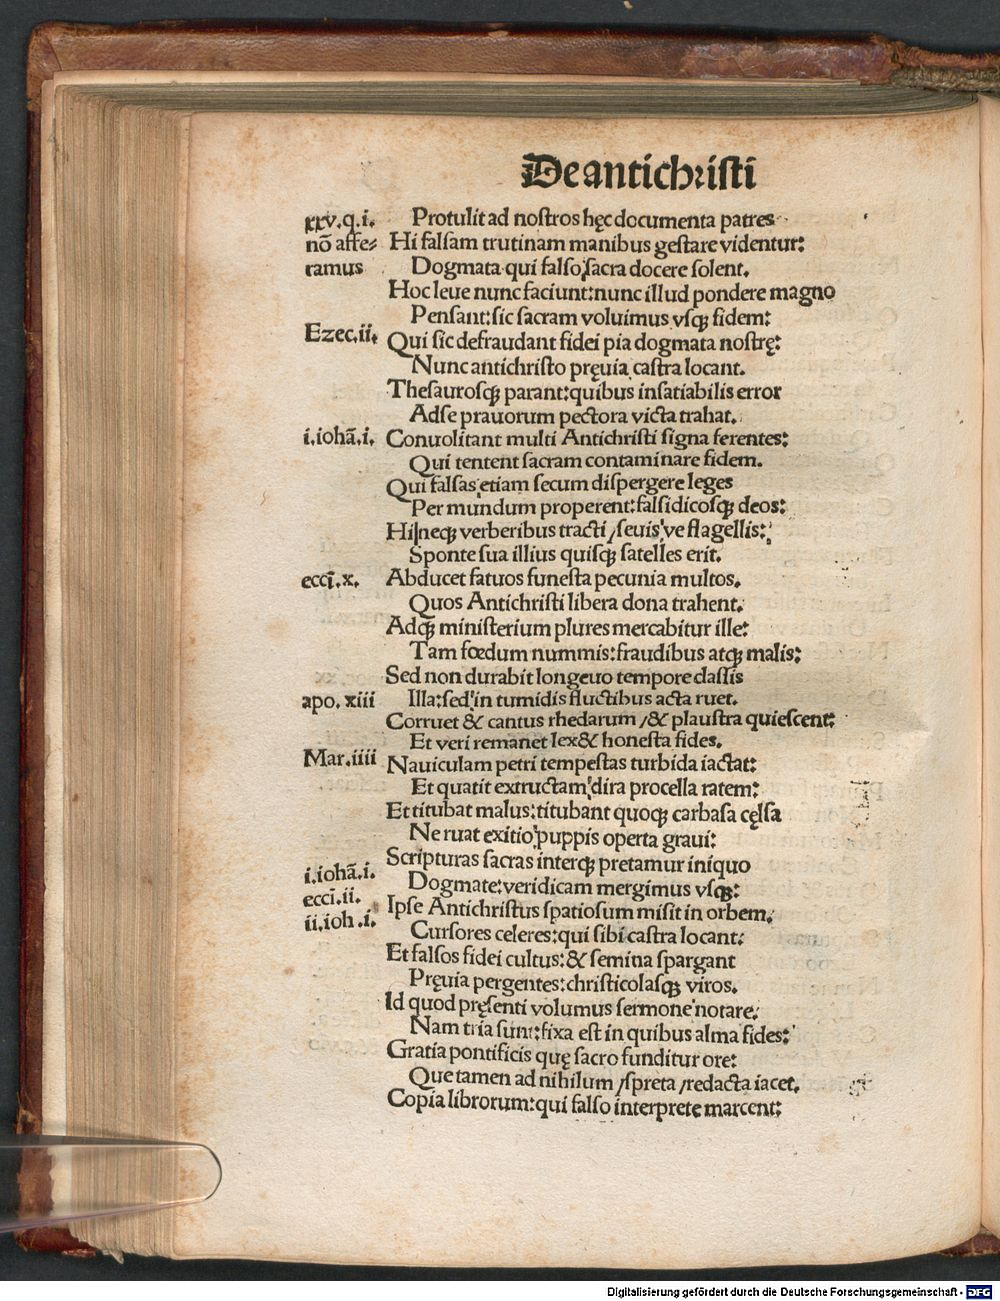 De antichristi
xxv.q.i.
nō affe-
ramus
Protulit ad nostros hęc documenta patres
Hi falsam trutinam manibus gestare videntur:
Dogmata qui falso sacra docere solent.
Hoc leue nunc faciunt: nunc illud pondere magno
Pensant: sic sacram voluimus vsqȝ fidem:
Ezec.ii.
Qui sic defraudant fidei pia dogmata nostrę:
Nunc antichristo pręuia castra locant.
Thesaurosqȝ parant: quibus insatiabilis error
Adse prauorum pectora victa trahat.
i.iohā.i.
Conuolitant multi Antichristi signa ferentes:
Qui tentent sacram contaminare fidem.
Qui falsas etiam secum dispergere leges
Per mundum properent: falsidicosqȝ deos:
Hi neqȝ verberibus tracti / seuis ve flagellis:
Sponte sua illius quisqȝ satelles erit.
eccī.x.
Abducet fatuos funesta pecunia multos.
Quos Antichristi libera dona trahent.
Adqȝ ministerium plures mercabitur ille:
Tam fœdum nummis: fraudibus atqȝ malis:
Sed non durabit longeuo tempore classis
apo. xiii
Illa: sed in tumidis fluctibus acta ruet.
Corruet & cantus rhedarum / & plaustra quiescent:
Et veri remanet lex & honesta fides.
Mar.iiii
Nauiculam petri tempestas turbida iactat:
Et quatit extructam dira procella ratem:
Et titubat malus: titubant quoqȝ carbasa cęlsa
Ne ruat exitio puppis operta graui:
Scripturas sacras interqȝ pretamur iniquo
i.iohā.i.
Dogmate: veridicam mergimus vsqȝ:
eccī.ii.
Ipse Antichristus spatiosum misit in orbem.
ii.ioh.i.
Cursores celeres: qui sibi castra locant:
Et falsos fidei cultus: & semina spargant
Pręuia pergentes: christicolasqȝ viros.
Id quod pręsenti volumus sermone notare:
Nam tria sunt: fixa est in quibus alma fides:
Gratia pontificis quę sacro funditur ore:
Que tamen ad nihilum / spreta / redacta iacet.
Copia librorum: qui falso interprete marcent:
Digitalisierung gefördert durch die Deutsche Forschungsgemeinschaft - DFG